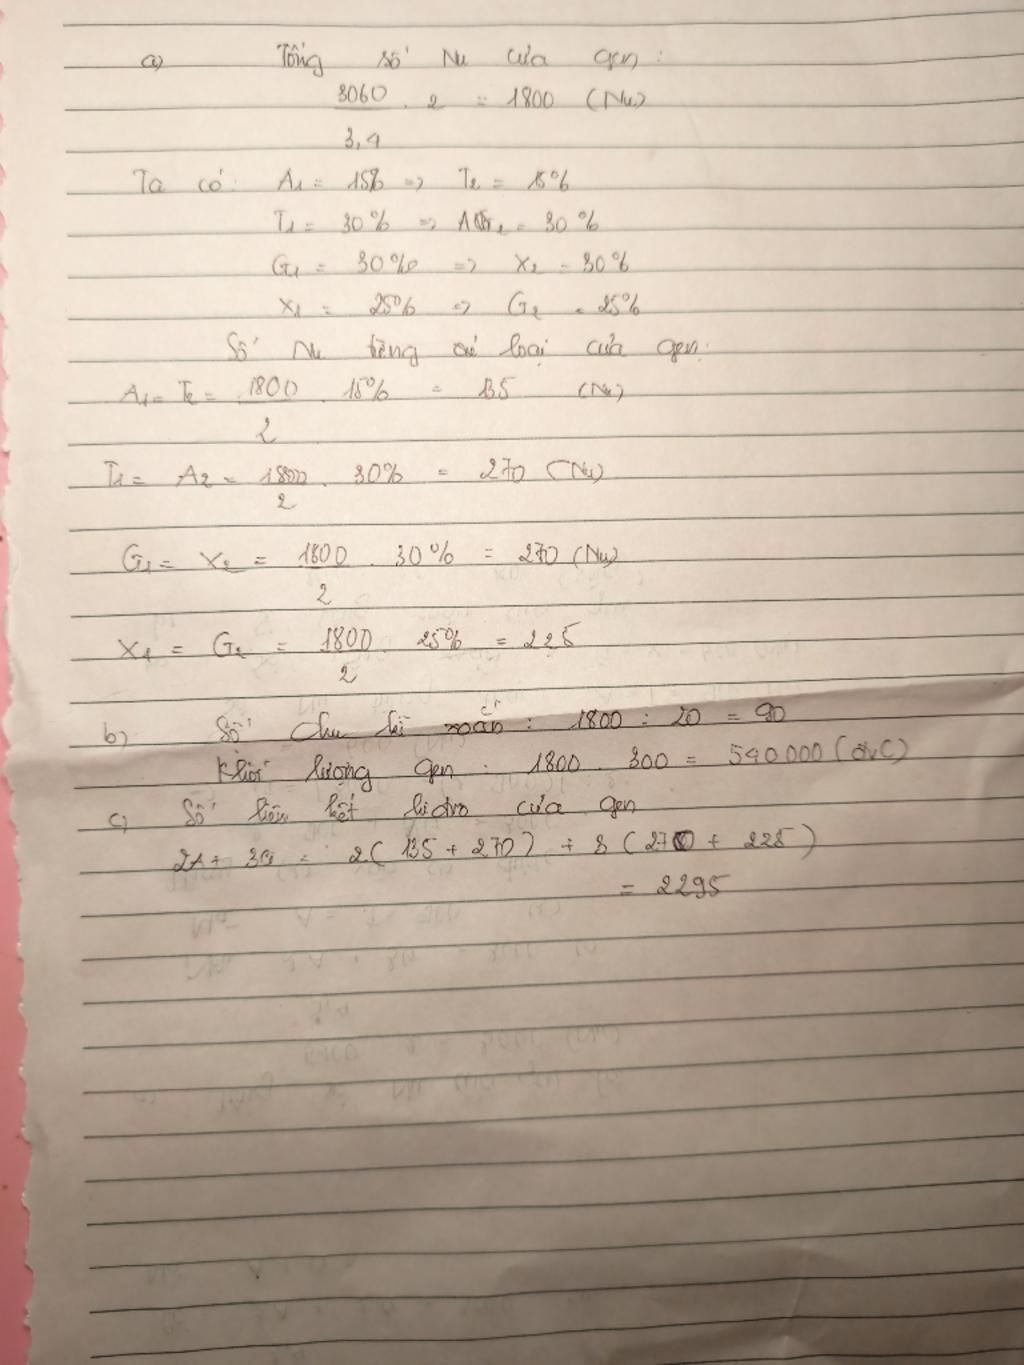 a) Tổng số Nu của gen :
3060 . 2 = 1800 (Nu)
3,4
Ta có: A1 = 15% => T2 = 15%
T1 = 30% => A2 = 30%
G1 = 30% => X2 = 30%
X1 = 25% => G2 = 25%
Số Nu từng loại của gen:
A1 = T2 = 1800 . 15% = 135 (Nu)
2
T1 = A2 = 1800 . 30% = 270 (Nu)
2
G1 = X2 = 1800 . 30% = 270 (Nu)
2
X1 = G2 = 1800 . 25% = 225
2
b) Số chu kì xoắn : 1800 : 20 = 90
Khối lượng gen : 1800 . 300 = 540000 (đvC)
c) Số liên kết hidro của gen
2A + 3G = 2( 135 + 270) + 3 ( 270 + 225 )
= 2295